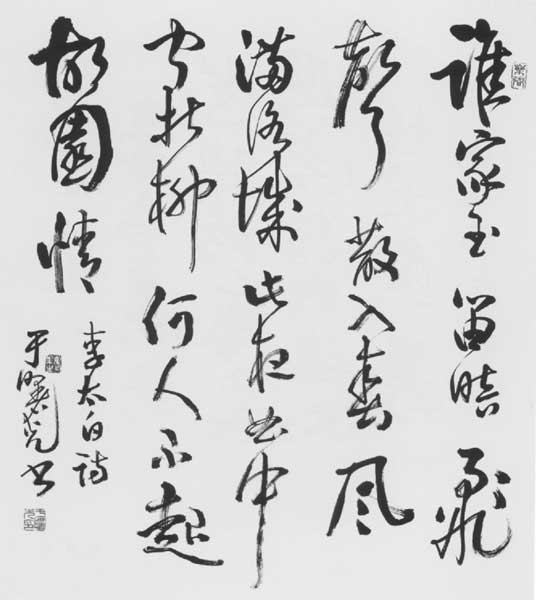 誰家玉笛暗飛
聲散入春風
滿洛城此夜曲中
聞折柳何人不起
故園情
李太白詩
于曙光書